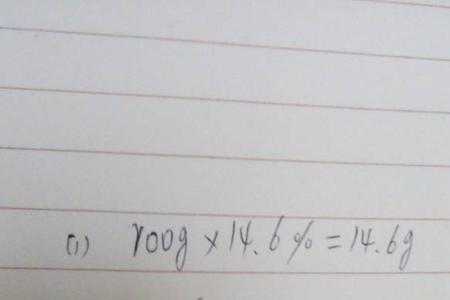 (1) 100g×14.6%=14.6g